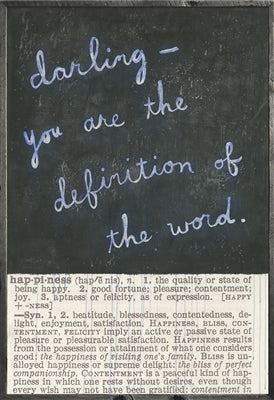 darling —
you are the
definition of
the word.
hap·pi·ness (hap′ē nis), n. 1. the quality or state of
being happy. 2. good fortune; pleasure; contentment;
joy. 3. aptness or felicity, as of expression. [HAPPY
+ -NESS]
—Syn. 1, 2. beatitude, blessedness, contentedness, de-
light, enjoyment, satisfaction. HAPPINESS, BLISS, CON-
TENTMENT, FELICITY imply an active or passive state of
pleasure or pleasurable satisfaction. HAPPINESS results
from the possession or attainment of what one considers
good: the happiness of visiting one's family. BLISS is un-
alloyed happiness or supreme delight: the bliss of perfect
companionship. CONTENTMENT is a peaceful kind of hap-
piness in which one rests without desires, even though
every wish may not have been gratified: contentment in